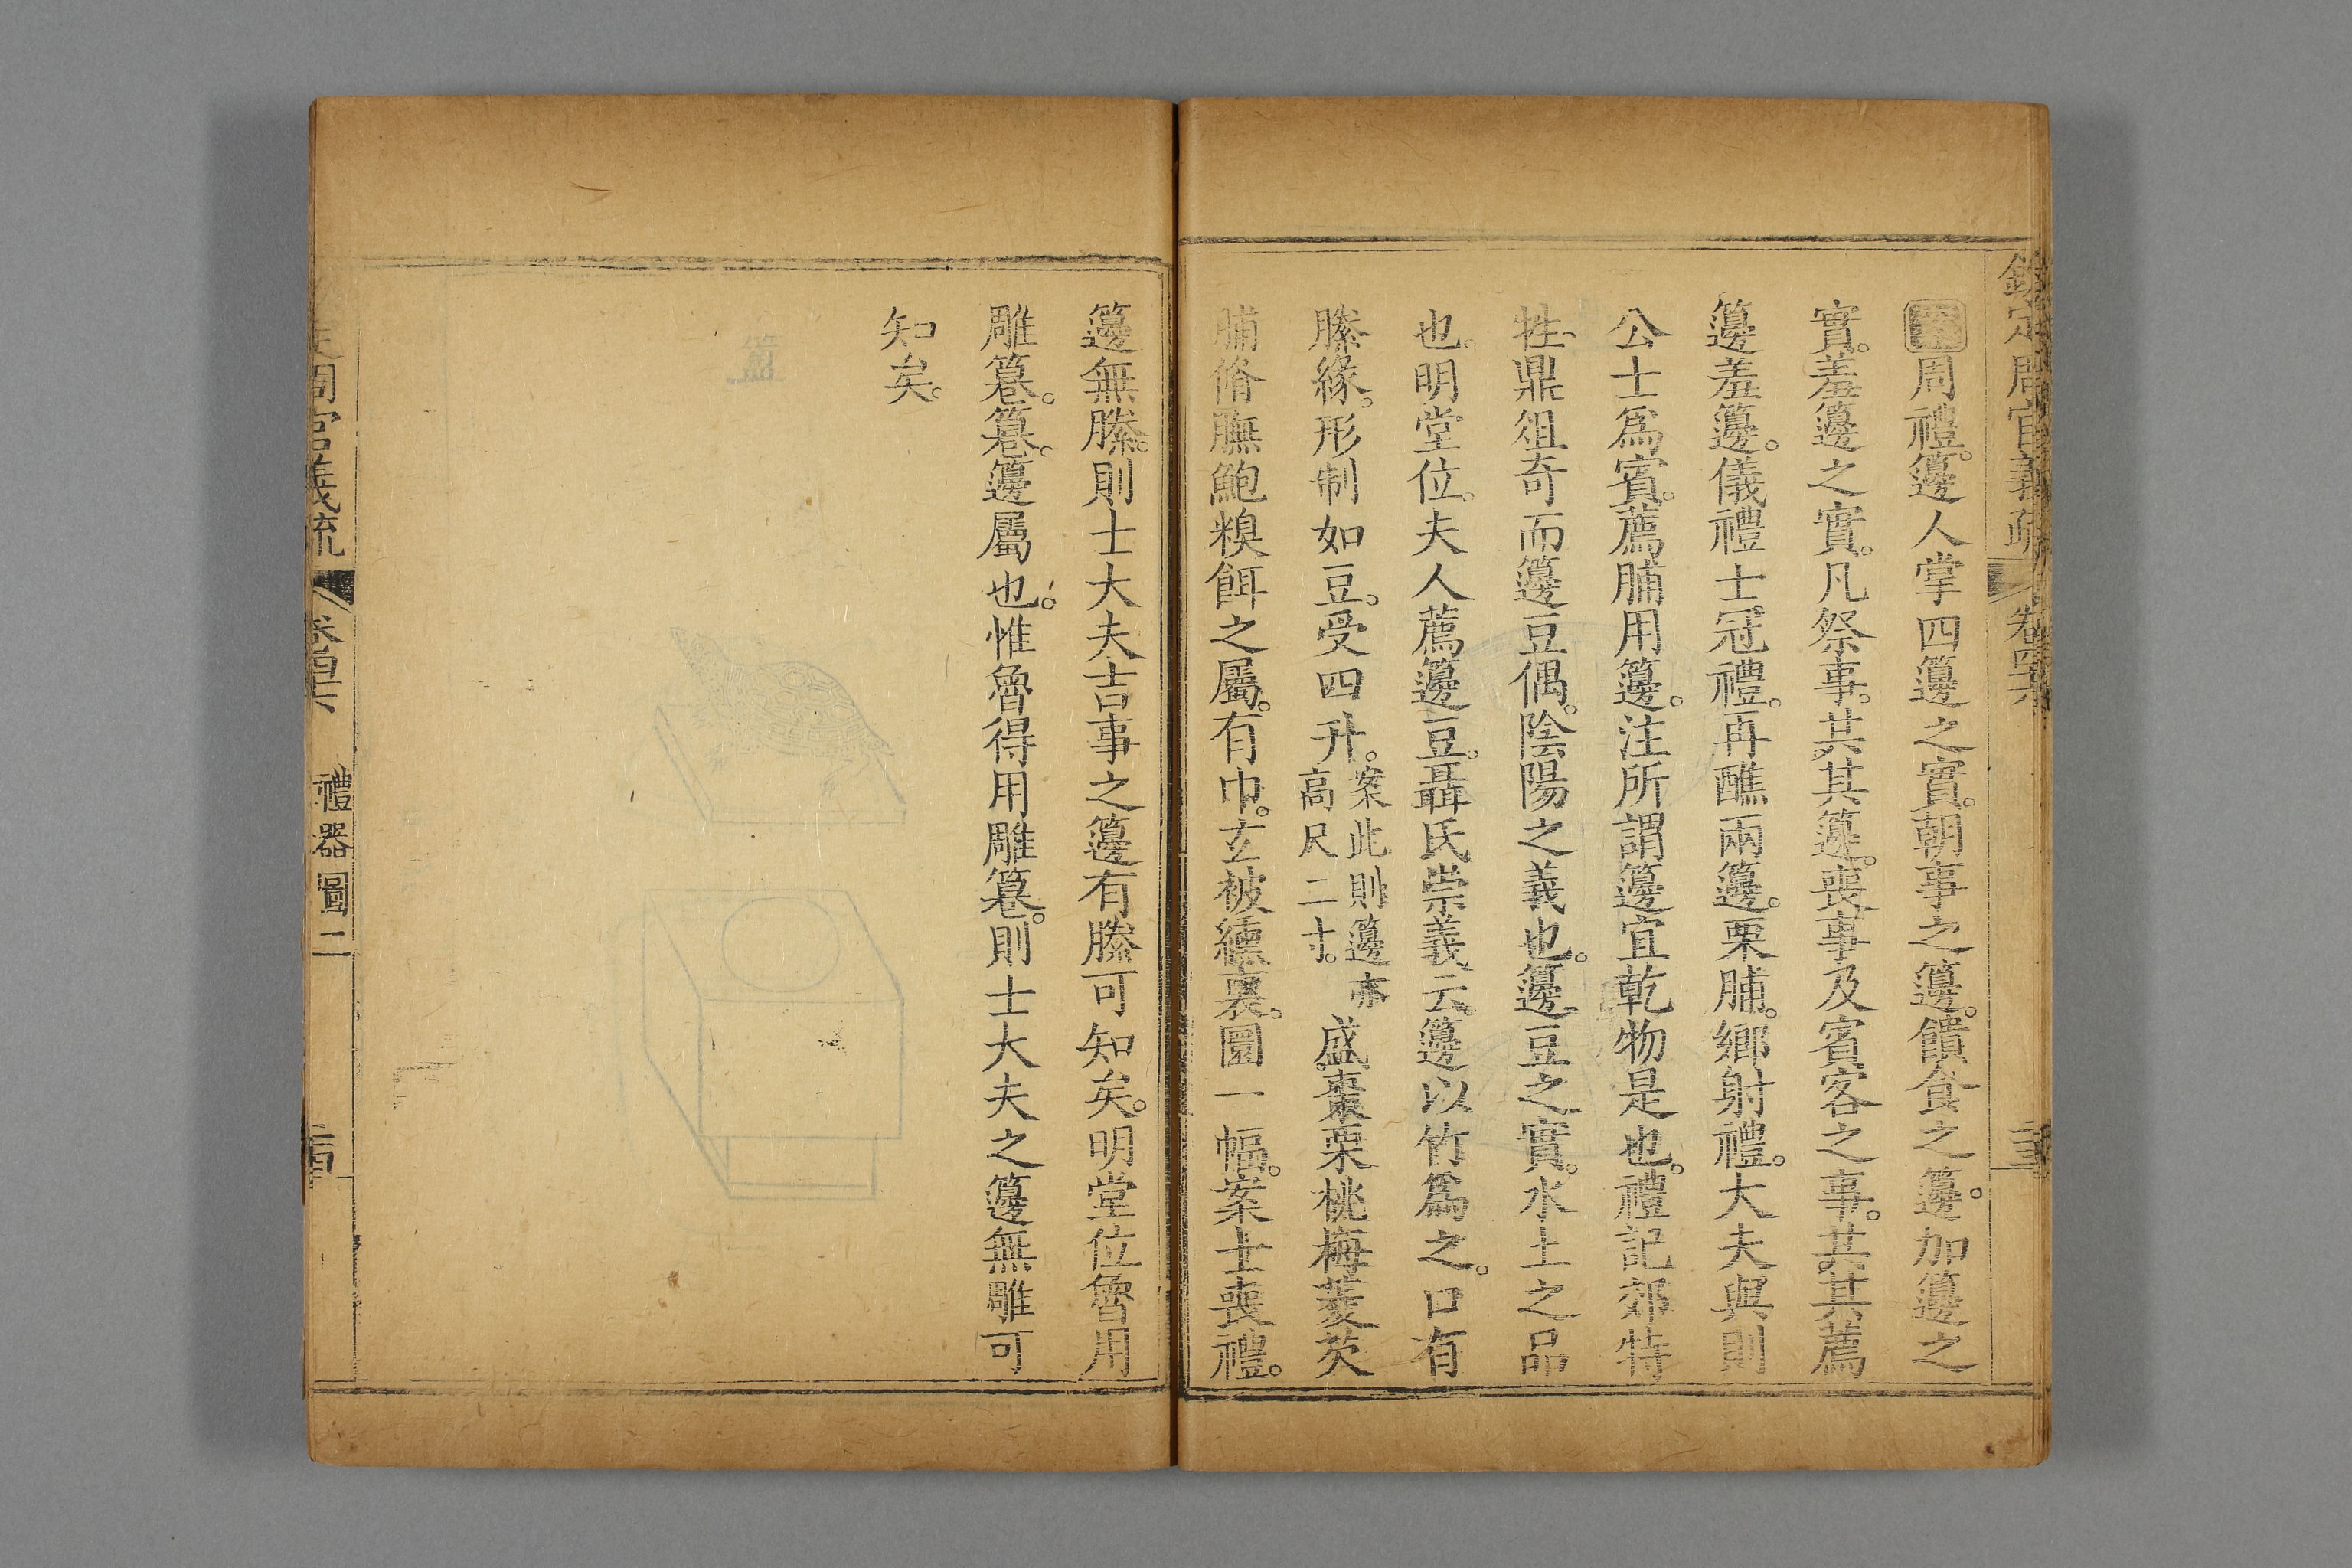 欽定周官義疏 卷四十六
周禮。籩人掌四籩之實。朝事之籩。饋食之籩。加籩之
實。羞籩之實。凡祭事。共其籩。喪事及賓客之事。共其薦
籩羞籩。儀禮士冠禮。再醮兩籩。栗脯。鄉射禮。大夫與則
公士爲賓。薦脯用籩。注所謂籩宜乾物是也。禮記郊特
牲鼎俎奇而籩豆偶。陰陽之義也。籩豆之實。水土之品
也。明堂位。夫人薦籩豆。聶氏崇義云。籩以竹爲之。口有
縢緣。形制如豆。受四升。案此則籩亦高尺二寸。盛棗栗桃梅菱芡
脯脩膴鮑糗餌之屬。有巾。玄被纁裏。圜一幅。案士喪禮。
籩無縢。則士大夫吉事之籩有縢可知矣。明堂位魯用
雕篹。篹。籩屬也。惟魯得用雕篹。則士大夫之籩無雕可
知矣。
定周官義疏 卷四十六 禮器圖二